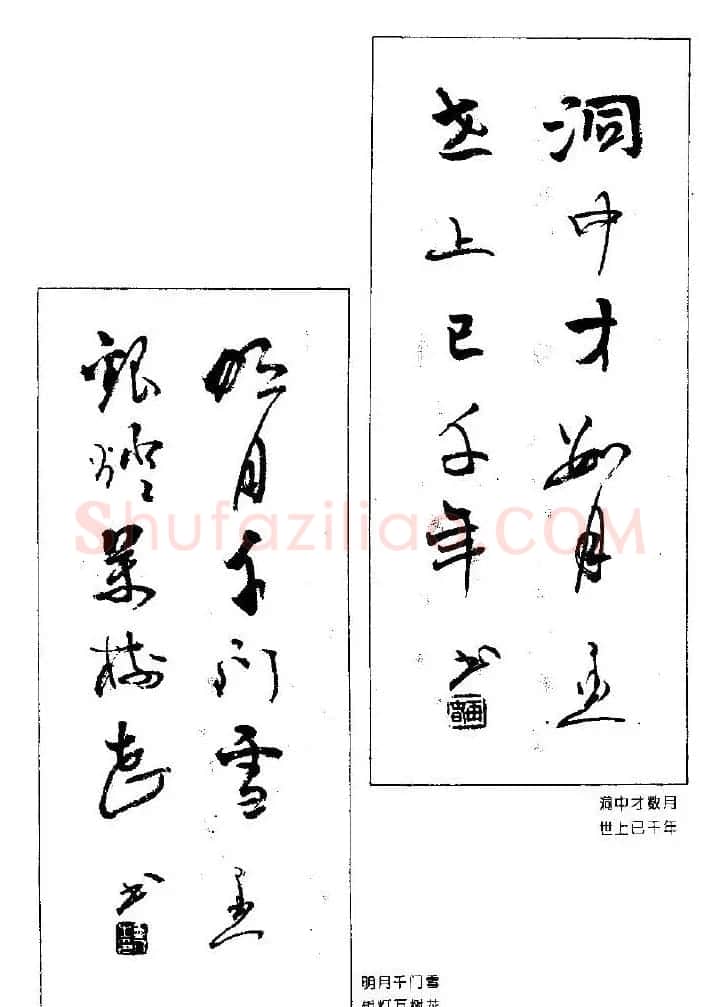 洞中才数月
世上已千年
书
洞中才数月
世上已千年
明月千门雪
银灯万树花
书
明月千门雪
银灯万树花
Shufaziliao.COM